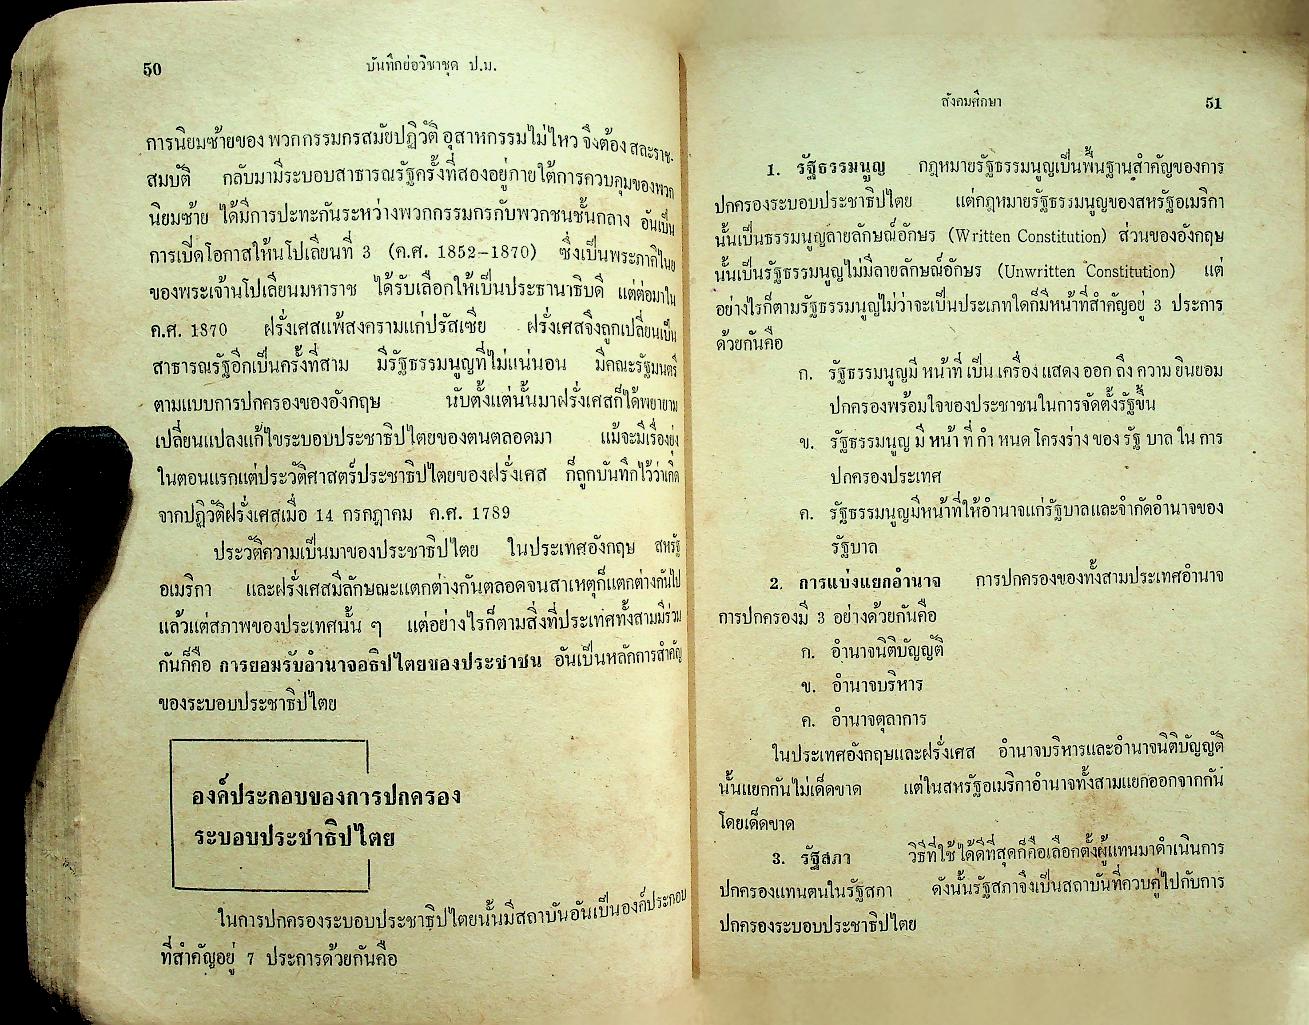 50
บันทึกย่อวิชาชุด ป.ม.
การนิยมซ้ายของ พวกกรรมกรสมัยปฏิวัติ อุสาหกรรมไม่ไหว จึงต้อง สละราช-
สมบัติ กลับมามีระบอบสาธารณรัฐครั้งที่สองอยู่ภายใต้การควบคุมของพวก
นิยมซ้าย ได้มีการปะทะกันระหว่างพวกกรรมกรกับพวกชนชั้นกลาง อันเป็น
การเปิดโอกาสให้นโปเลียนที่ 3 (ค.ศ. 1852–1870) ซึ่งเป็นพระภาคิไนย
ของพระเจ้านโปเลียนมหาราช ได้รับเลือกให้เป็นประธานาธิบดี แต่ต่อมาใน
ค.ศ. 1870 ฝรั่งเศสแพ้สงครามแก่ปรัสเซีย ฝรั่งเศสจึงถูกเปลี่ยนเป็น
สาธารณรัฐอีกเป็นครั้งที่สาม มีรัฐธรรมนูญที่ไม่แน่นอน มีคณะรัฐมนตรี
ตามแบบการปกครองของอังกฤษ นับตั้งแต่นั้นมาฝรั่งเศสก็ได้พยายาม
เปลี่ยนแปลงแก้ไขระบอบประชาธิปไตยของตนตลอดมา แม้จะมีเรื่องยุ่ง
ในตอนแรกแต่ประวัติศาสตร์ประชาธิปไตยของฝรั่งเศส ก็ถูกบันทึกไว้ว่าเกิด
จากปฏิวัติฝรั่งเศสเมื่อ 14 กรกฎาคม ค.ศ. 1789
ประวัติความเป็นมาของประชาธิปไตย ในประเทศอังกฤษ สหรัฐ
อเมริกา และฝรั่งเศสมีลักษณะแตกต่างกันตลอดจนสาเหตุก็แตกต่างกันไป
แล้วแต่สภาพของประเทศนั้น ๆ แต่อย่างไรก็ตามสิ่งที่ประเทศทั้งสามมีร่วม
กันก็คือ การยอมรับอำนาจอธิปไตยของประชาชน อันเป็นหลักการสำคัญ
ของระบอบประชาธิปไตย
องค์ประกอบของการปกครอง
ระบอบประชาธิปไตย
ในการปกครองระบอบประชาธิปไตยนั้นมีสถาบันอันเป็นองค์ประกอบ
ที่สำคัญอยู่ 7 ประการด้วยกันคือ
สังคมศึกษา
51
1. รัฐธรรมนูญ กฎหมายรัฐธรรมนูญเป็นพื้นฐานสำคัญของการ
ปกครองระบอบประชาธิปไตย แต่กฎหมายรัฐธรรมนูญของสหรัฐอเมริกา
นั้นเป็นธรรมนูญลายลักษณ์อักษร (Written Constitution) ส่วนของอังกฤษ
นั้นเป็นรัฐธรรมนูญไม่มีลายลักษณ์อักษร (Unwritten Constitution) แต่
อย่างไรก็ตามรัฐธรรมนูญไม่ว่าจะเป็นประเภทใดก็มีหน้าที่สำคัญอยู่ 3 ประการ
ด้วยกันคือ
ก. รัฐธรรมนูญมี หน้าที่ เป็น เครื่อง แสดง ออก ถึง ความ ยินยอม
ปกครองพร้อมใจของประชาชนในการจัดตั้งรัฐขึ้น
ข. รัฐธรรมนูญ มี หน้า ที่ กำ หนด โครงร่าง ของ รัฐ บาล ใน การ
ปกครองประเทศ
ค. รัฐธรรมนูญมีหน้าที่ให้อำนาจแก่รัฐบาลและจำกัดอำนาจของ
รัฐบาล
2. การแบ่งแยกอำนาจ การปกครองของทั้งสามประเทศอำนาจ
การปกครองมี 3 อย่างด้วยกันคือ
ก. อำนาจนิติบัญญัติ
ข. อำนาจบริหาร
ค. อำนาจตุลาการ
ในประเทศอังกฤษและฝรั่งเศส อำนาจบริหารและอำนาจนิติบัญญัติ
นั้นแยกกันไม่เด็ดขาด แต่ในสหรัฐอเมริกาอำนาจทั้งสามแยกออกจากกัน
โดยเด็ดขาด
3. รัฐสภา วิธีที่ใช้ได้ดีที่สุดก็คือเลือกตั้งผู้แทนมาดำเนินการ
ปกครองแทนตนในรัฐสภา ดังนั้นรัฐสภาจึงเป็นสถาบันที่ควบคู่ไปกับการ
ปกครองระบอบประชาธิปไตย